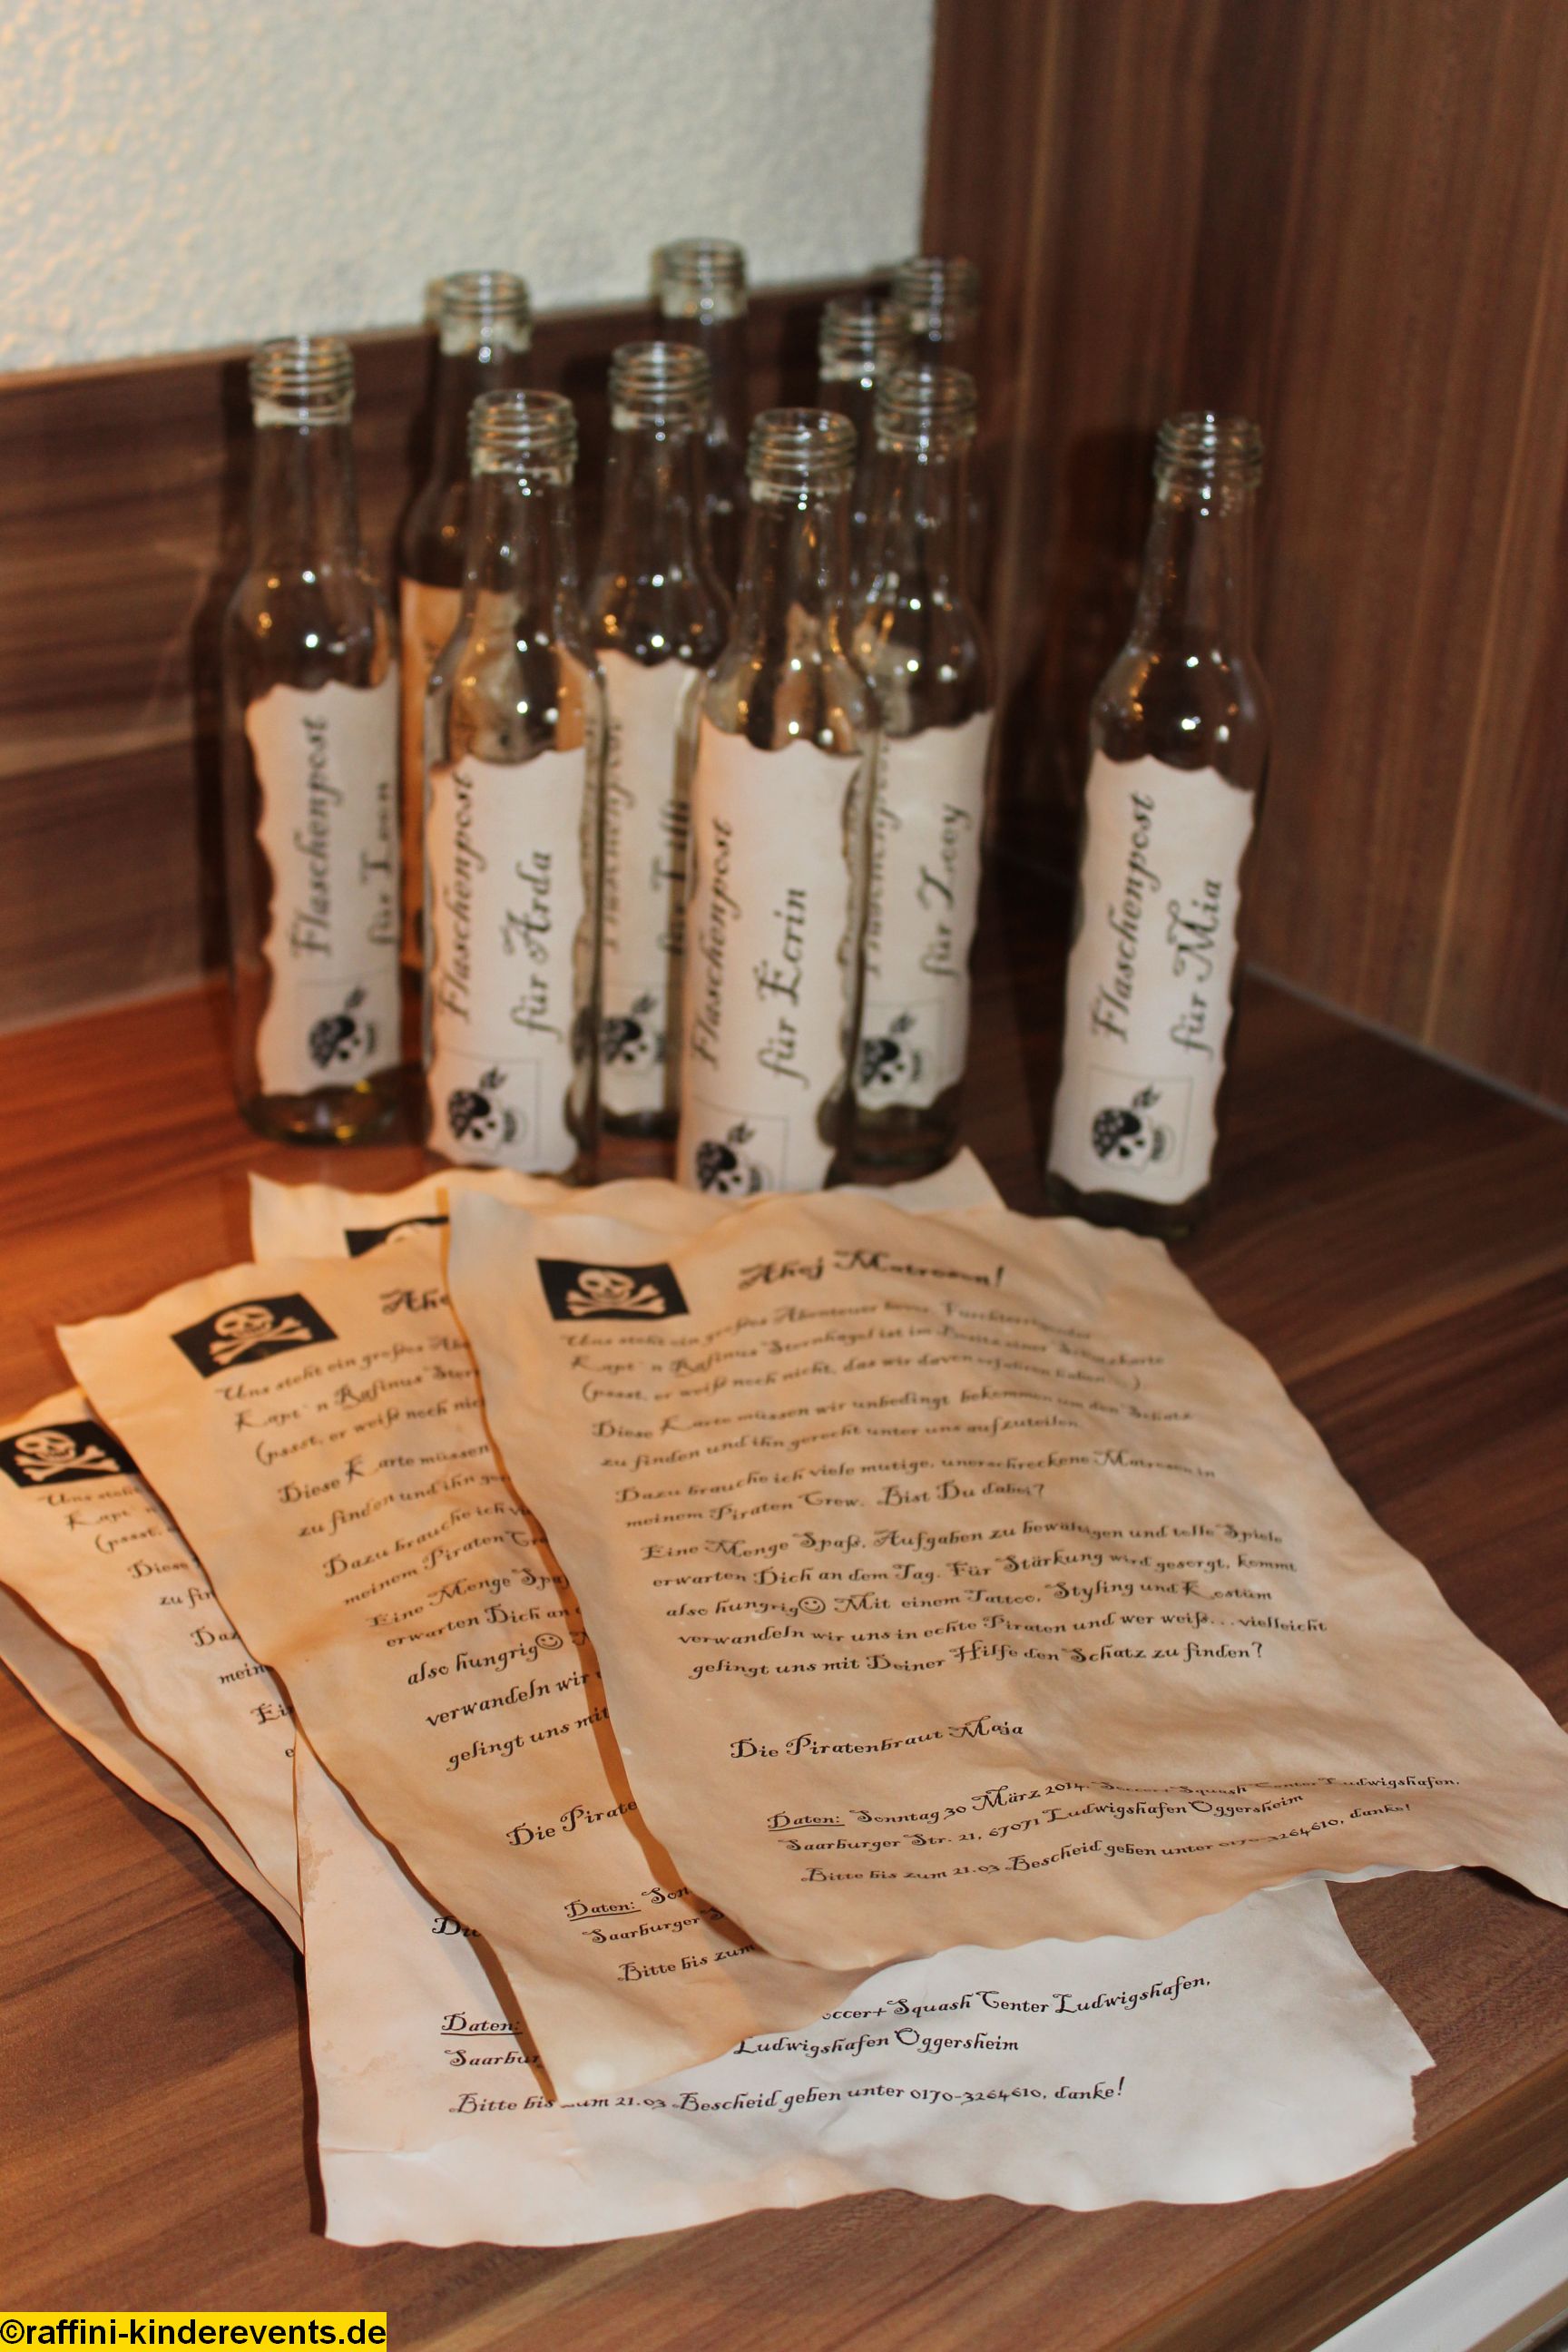 Flaschenpost
für
Flaschenpost
für Arda
Flaschenpost
für
Flaschenpost
für Ecrin
Flaschenpost
für
Flaschenpost
für Mia
Ahoj Matrosen!
Uns steht ein großes Abenteuer bevor. Furchterregender
Kapt´n Rafinus Sternhagel ist im Besitz einer Schatzkarte
(pssst, er weiß noch nicht, das wir davon erfahren haben...)
Diese Karte müssen wir unbedingt bekommen um den Schatz
zu finden und ihn gerecht unter uns aufzuteilen.
Dazu brauche ich viele mutige, unerschreckene Matrosen in
meinem Piraten Crew. Bist Du dabei?
Eine Menge Spaß, Aufgaben zu bewältigen und tolle Spiele
erwarten Dich an dem Tag. Für Stärkung wird gesorgt, kommt
also hungrig☺ Mit einem Tattoo, Styling und Kostüm
verwandeln wir uns in echte Piraten und wer weiß...vielleicht
gelingt uns mit Deiner Hilfe den Schatz zu finden?
Die Piratenbraut Maja
Daten: Sonntag 30 März 2014, Soccer+Squash Center Ludwigshafen,
Saarburger Str. 21, 67071 Ludwigshafen Oggersheim
Bitte bis zum 21.03 Bescheid geben unter 0170-3264610, danke!
Uns steht ein großes
Kapt´n Rafinus
(pssst, er weiß noch
Diese Karte müssen
zu finden und ihn
Dazu brauche ich
meinem Piraten
Eine Menge
erwarten Dich an
also hungrig☺
verwandeln wir
gelingt uns mit
Die
Daten:
Saarburger
Bitte bis zum
Uns
(pssst,
Diese
zu
Daten:
Squash Center Ludwigshafen,
Ludwigshafen Oggersheim
Bitte bis zum 21.03 Bescheid geben unter 0170-3264610, danke!
©raffini-kinderevents.de